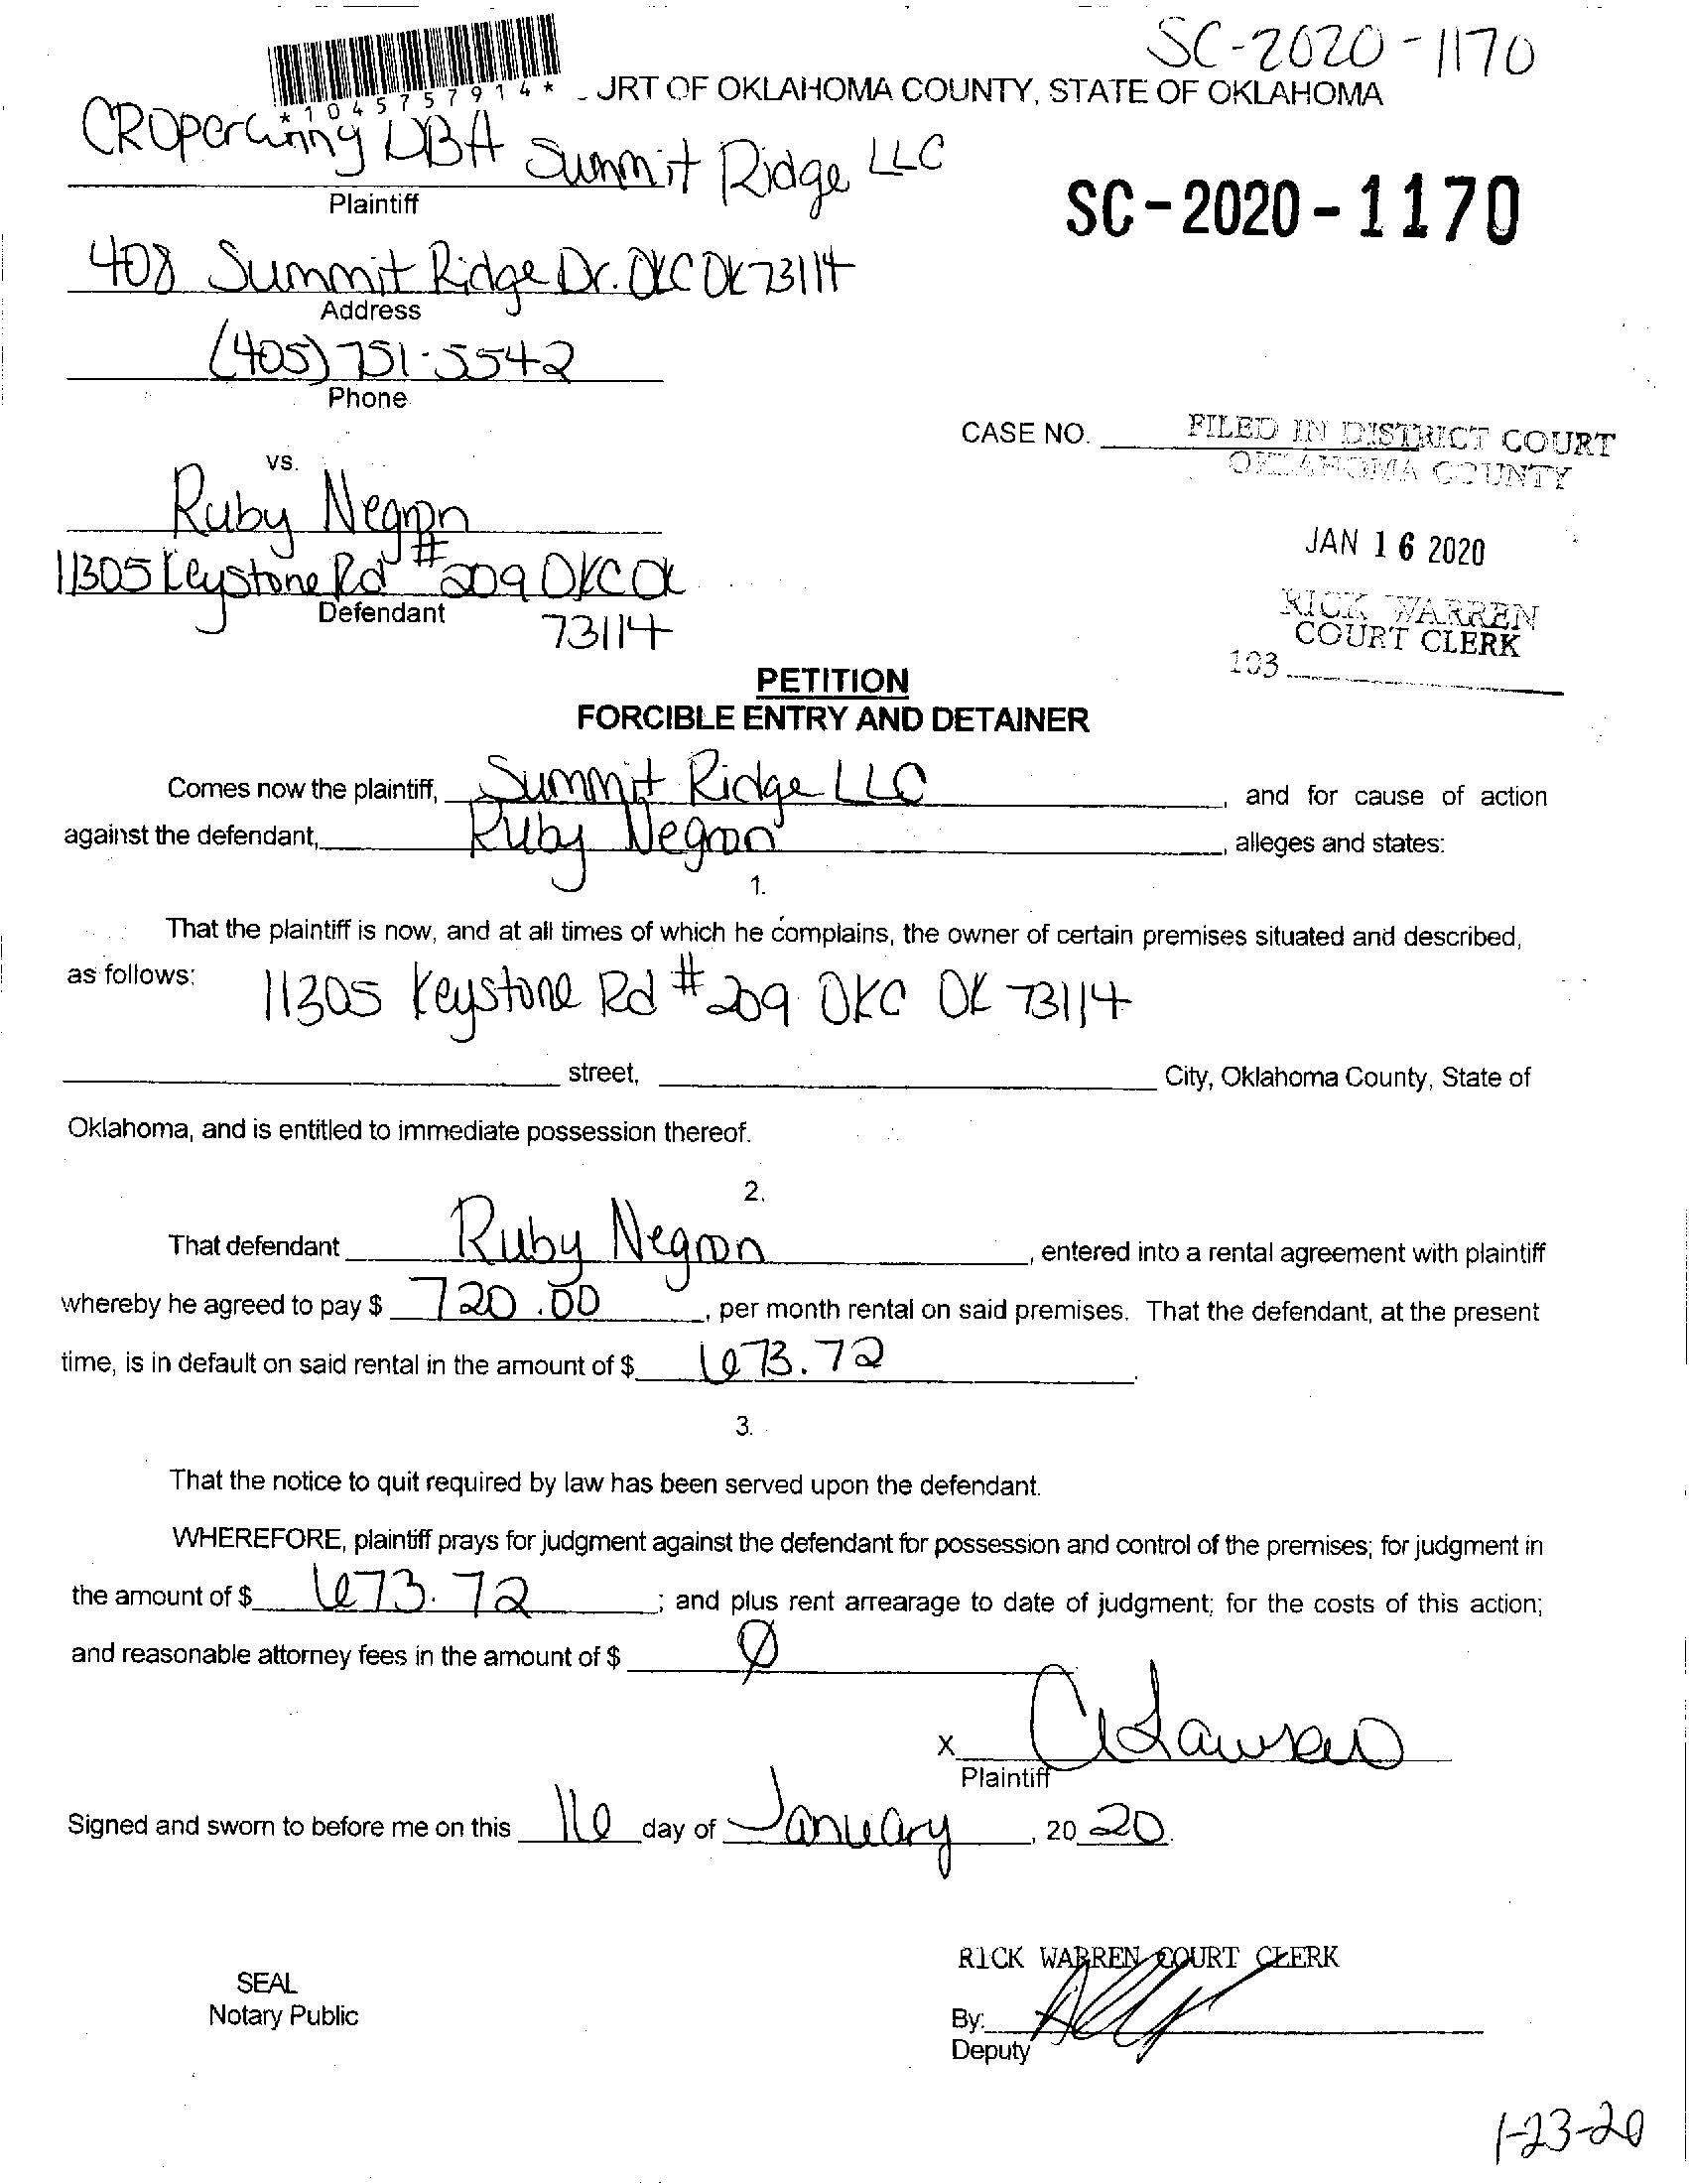 SC-2020-1170
*1045757914*
JRT OF OKLAHOMA COUNTY, STATE OF OKLAHOMA
DBA Summit Ridge LLC
Plaintiff
SC-2020-1170
408 Summit Ridge Dr. OKC OK 73114
Address
(405) 751-5542
Phone
CASE NO.
FILED IN DISTRICT COURT
OKLAHOMA COUNTY
vs.
Ruby Negron
JAN 16 2020
11305 Keystone Rd #209 OKC OK
Defendant
73114
RICK WARREN
COURT CLERK
103
PETITION
FORCIBLE ENTRY AND DETAINER
Comes now the plaintiff, Summit Ridge LLC, and for cause of action
against the defendant, Ruby Negron, alleges and states:
1.
That the plaintiff is now, and at all times of which he complains, the owner of certain premises situated and described,
as follows: 11305 Keystone Rd #209 OKC OK 73114
street, City, Oklahoma County, State of
Oklahoma, and is entitled to immediate possession thereof.
2.
That defendant Ruby Negron, entered into a rental agreement with plaintiff
whereby he agreed to pay $ 720.00, per month rental on said premises. That the defendant, at the present
time, is in default on said rental in the amount of $ 673.72.
3.
That the notice to quit required by law has been served upon the defendant.
WHEREFORE, plaintiff prays for judgment against the defendant for possession and control of the premises; for judgment in
the amount of $ 673.72; and plus rent arrearage to date of judgment; for the costs of this action;
and reasonable attorney fees in the amount of $ Ø
X
Plaintiff
Signed and sworn to before me on this 16 day of January, 20 20.
RICK WARREN COURT CLERK
SEAL
Notary Public
By:
Deputy
1-23-20